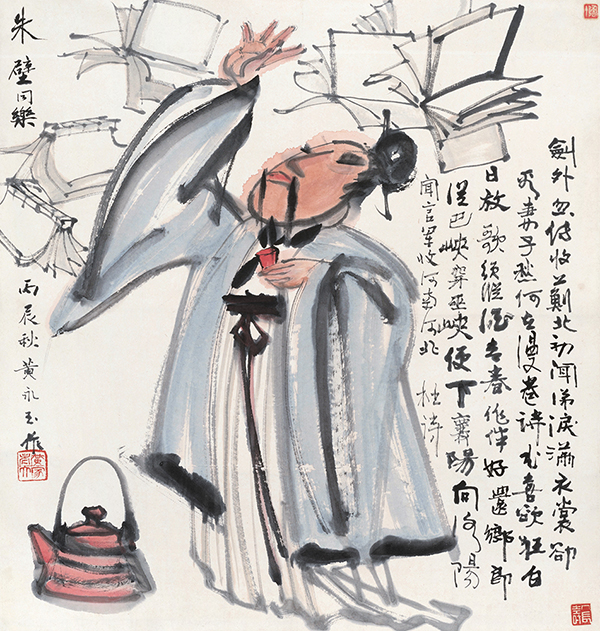 劍外忽傳收薊北初聞涕淚滿衣裳卻
看妻子愁何在漫卷詩書喜欲狂白
日放歌須縱酒青春作伴好還鄉即
從巴峽穿巫峽便下襄陽向洛陽
聞官軍收河南河北 杜詩
朱壁同樂
丙辰秋黄永玉作